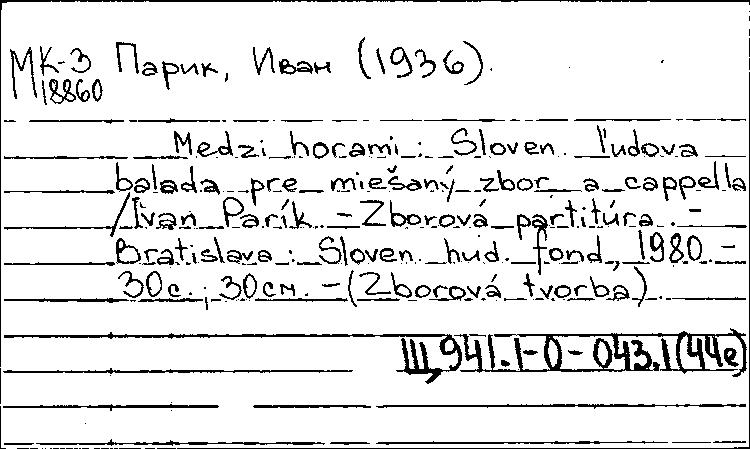 МК-3 Парик, Иван (1936).
18860
Medzi horami : Sloven. ľudova
balada pre miešaný zbor a cappella
/Ivan Parík - Zborová partitúra. -
Bratislava : Sloven. hud. fond, 1980. -
30с.; 30см. - (Zborová tvorba)
Щ941.1-0-043.1(44е)